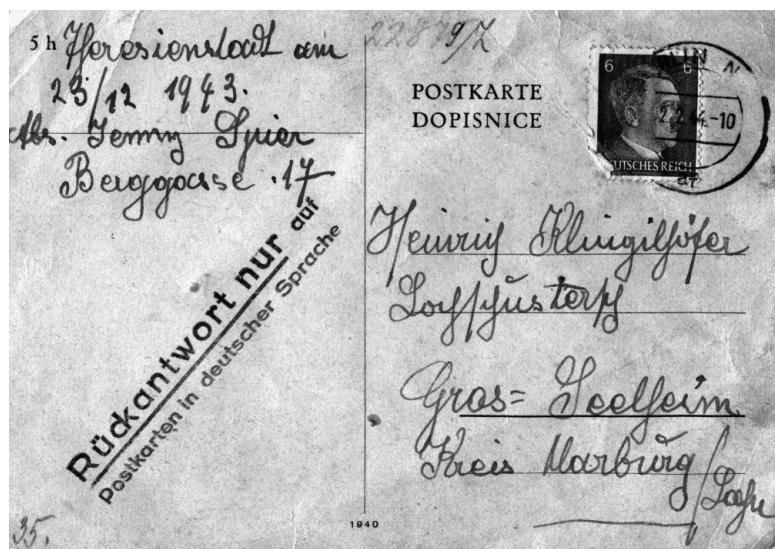 5 h Theresienstadt am
23/12 1943.
Abs. Jenny Spier
Berggasse 17
Rückantwort nur auf
Postkarten in deutscher Sprache
35.
22879/Z
POSTKARTE
DOPISNICE
6 6
DEUTSCHES REICH
2.2.44.-10
Heinrich Klingilhöfer
Gros= Seelheim
Kreis Marburg/Lahn
1940